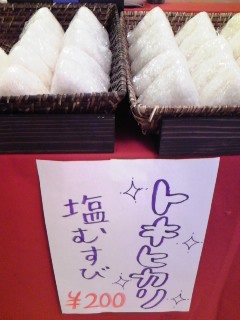 トキヒカリ
塩むすび
¥200